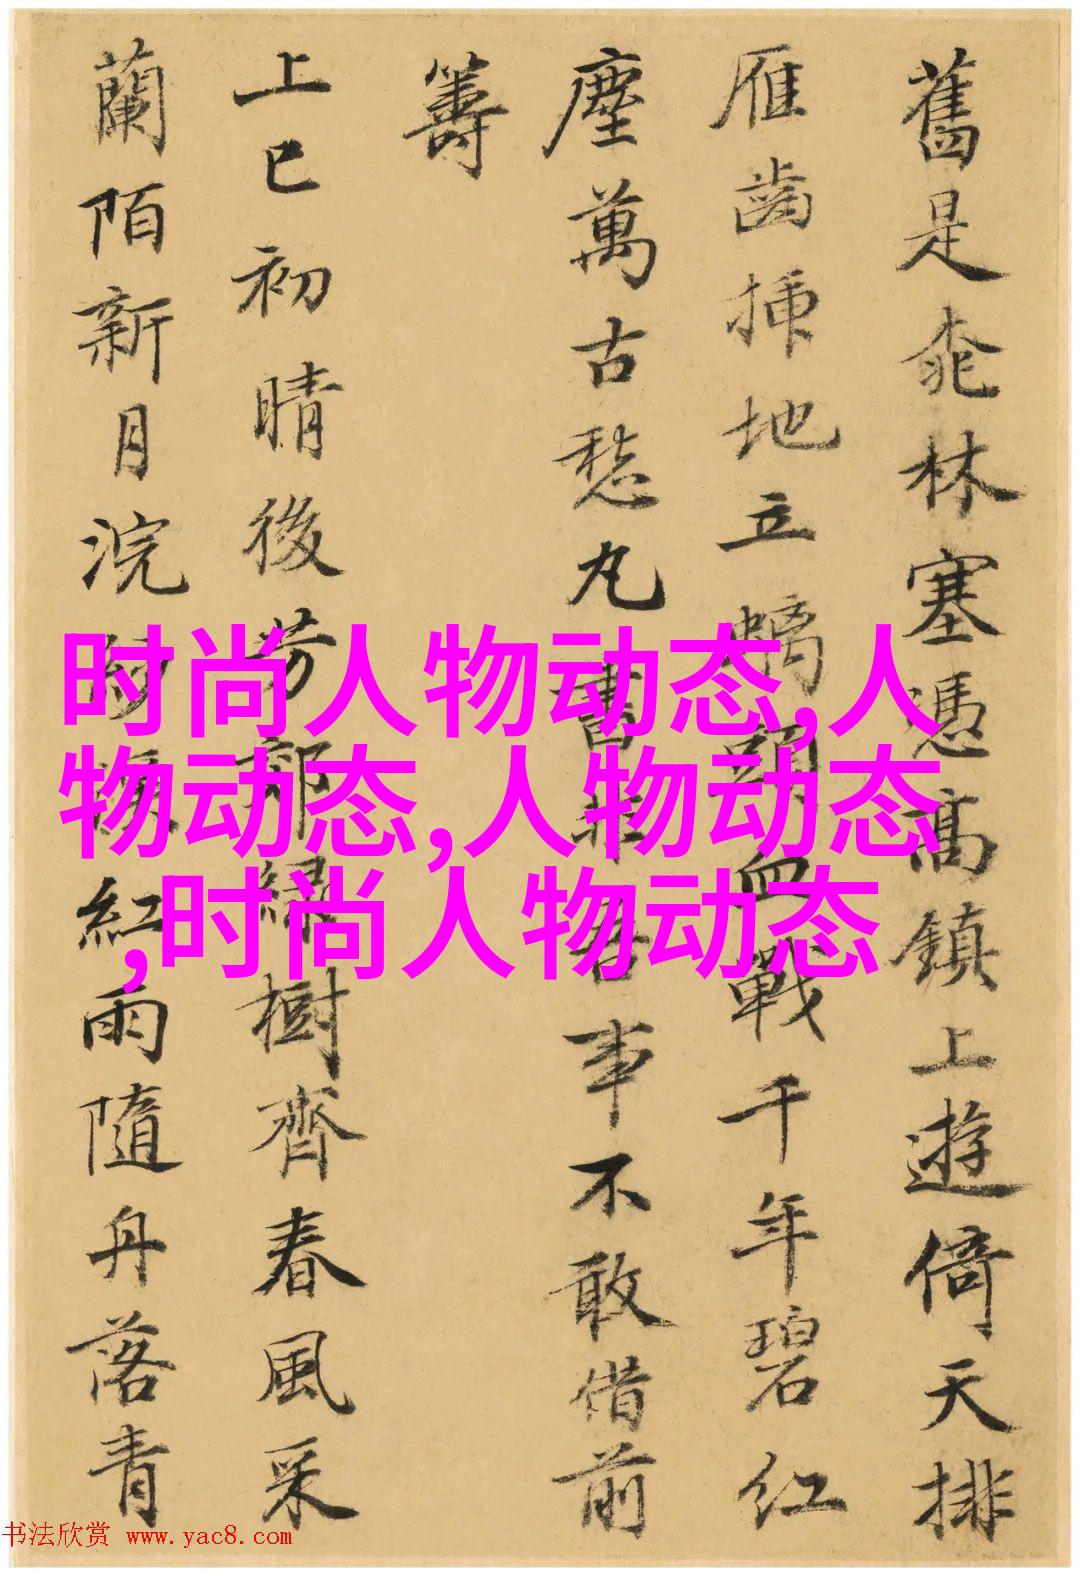 舊是林塞憑高鎮上遊倚天排
雁齒揷地立螭頭血戰千年碧紅
塵萬古愁丸書非吾事不敢借前
籌
上巳初晴後芳郊綠樹齊春風采
蘭陌新月浣溪紅雨隨舟落青
时尚人物动态,人
物动态,人物动态
,时尚人物动态
书法欣赏 www.yac8.com